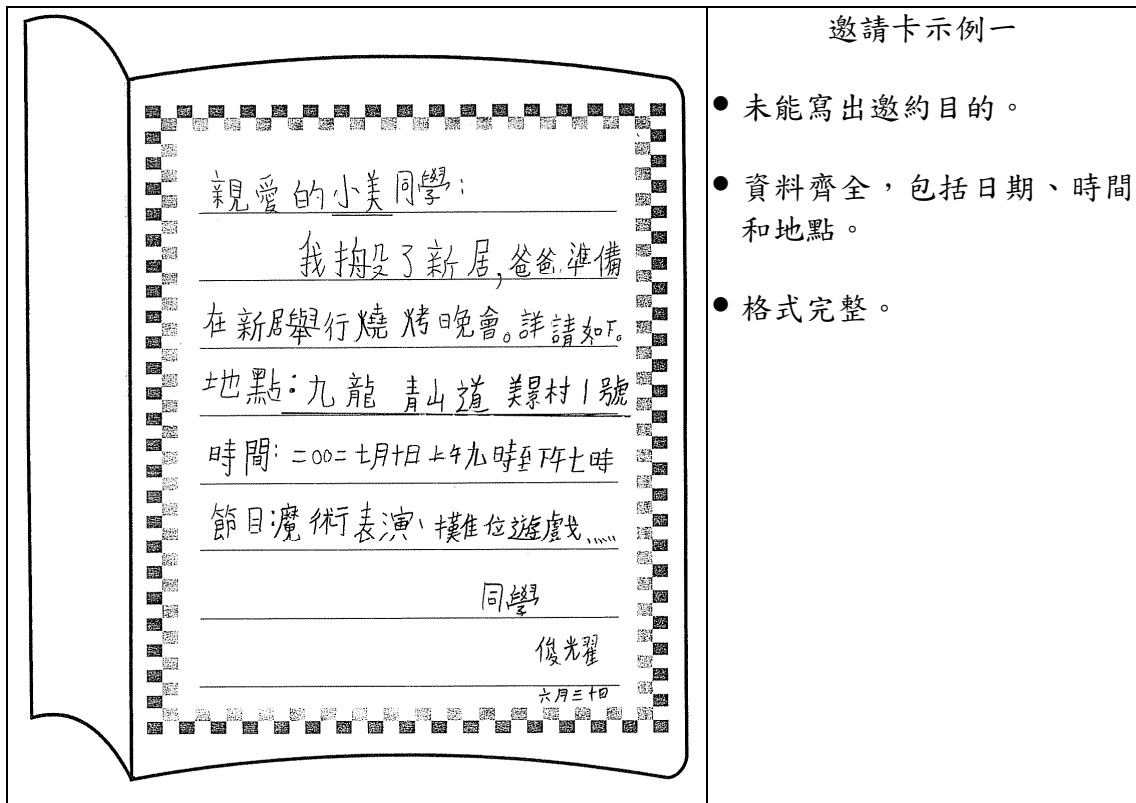 親愛的小美同學:
我搬了新居,爸爸準備
在新居舉行燒烤晚會。詳請如下。
地點:九龍 青山道 美景村1號
時間:二00二七月十日上午九時至下午七時
節目:魔術表演、攤位遊戲......
同學
俊光耀
六月三十日
邀請卡示例一
● 未能寫出邀約目的。
● 資料齊全,包括日期、時間
和地點。
● 格式完整。